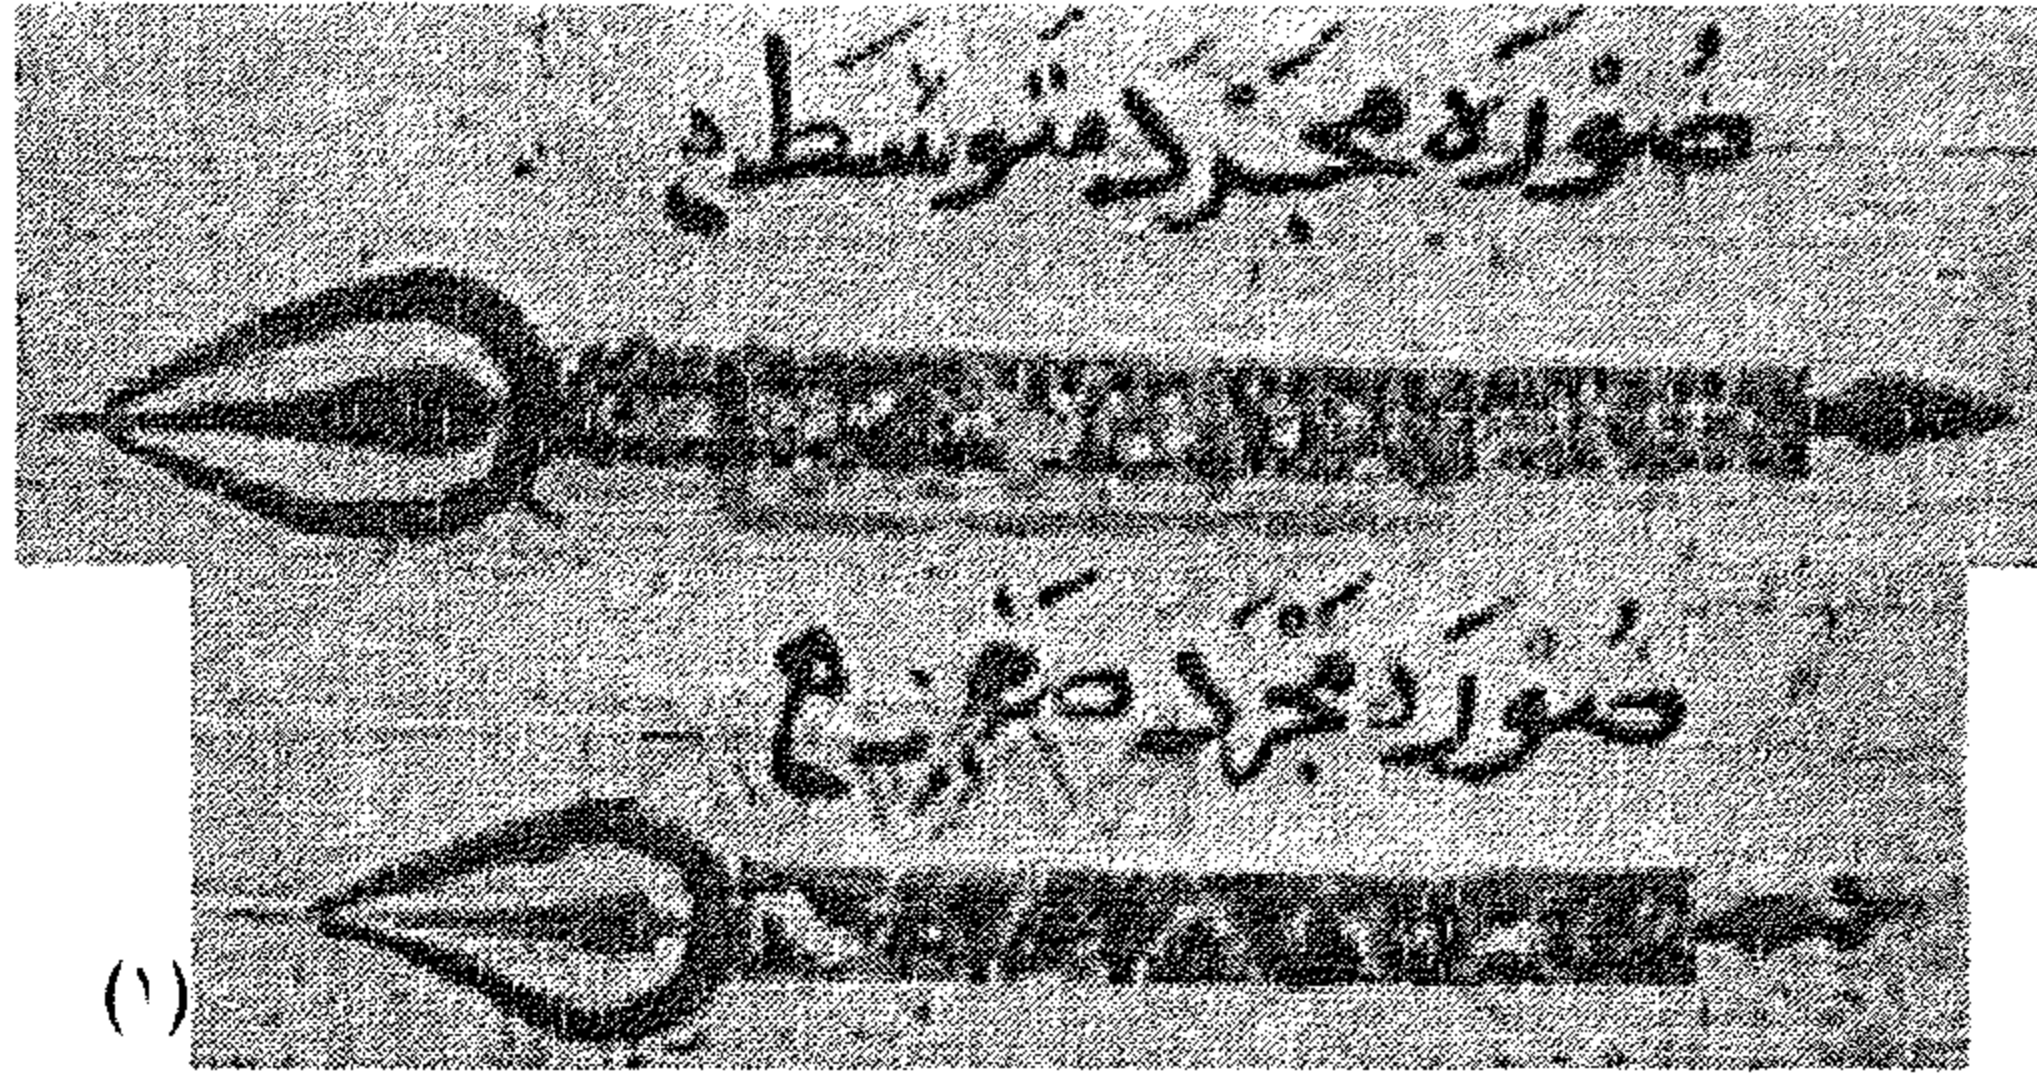 صُوْرَة مَجْرَد مُتَوَسِّط
صُوْرَة مَجْرَد صَغِير
(١)